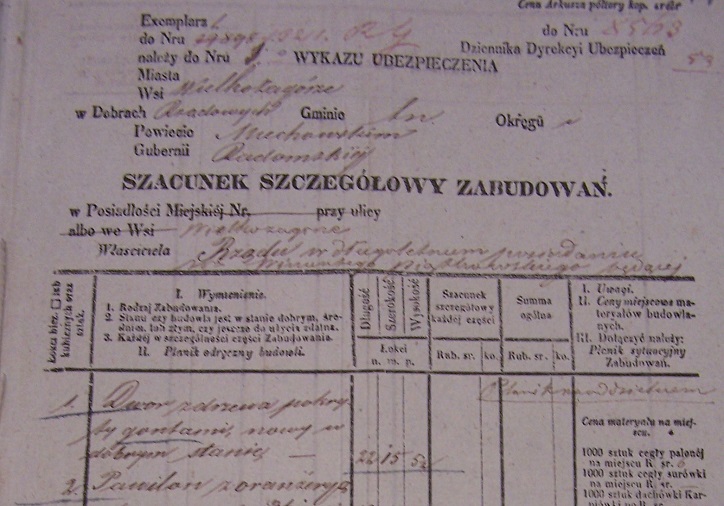 Cena Arkusza półtory kop. srbre
Exemplarz
do Nru do Nru 8563
należy do Nru WYKAZU UBEZPIECZENIA Dziennika Dyrekcyi Ubezpieczeń
Miasta
Wsi Wielkozagórze
w Dobrach Rządowych Gminie tn Okręgu
Powiecie Miechowskim
Gubernii Radomskiéj
SZACUNEK SZCZEGÓŁOWY ZABUDOWAŃ.
w Posiadłości Miejskiéj Nr. przy ulicy
albo we Wsi Wielkozagórze
Właściciela Rządu w długoletniem posiadaniu
będącej
Łokcı bież. □ lub kubicznych oraz sztuk.
I. Wymienienie.
1. Rodzaj Zabudowania.
2. Stanu czy budowla jest w stanie dobrym, średnim, lub złym, czy jeszcze do użycia zdatna.
3. Każdéj w szczególności części Zabudowania.
II. Planik odręczny budowli.
Długość Szerokość Wysokość
Łokci
n. m. p.
Szacunek
szczegółowy
każdéj części
Rub. sr. ko.
Summa
ogólna
Rub. sr. ko.
I. Uwagi.
II. Ceny miejscowe materyałów budowlanych.
III. Dołączyć należy:
Planik sytuacyjny
Zabudowań.
1. Dwór z drzewa pokry
ty gontami, nowy w
dobrym stanie — 22 15 5½
2. Pawilon z oranżeryą
Cena materyału na miejscu.
1000 sztuk cegły palonéj
na miejscu R. sr.
1000 sztuk cegły surówki
na miejscu R. sr.
1000 sztuk dachówki Karpiówki